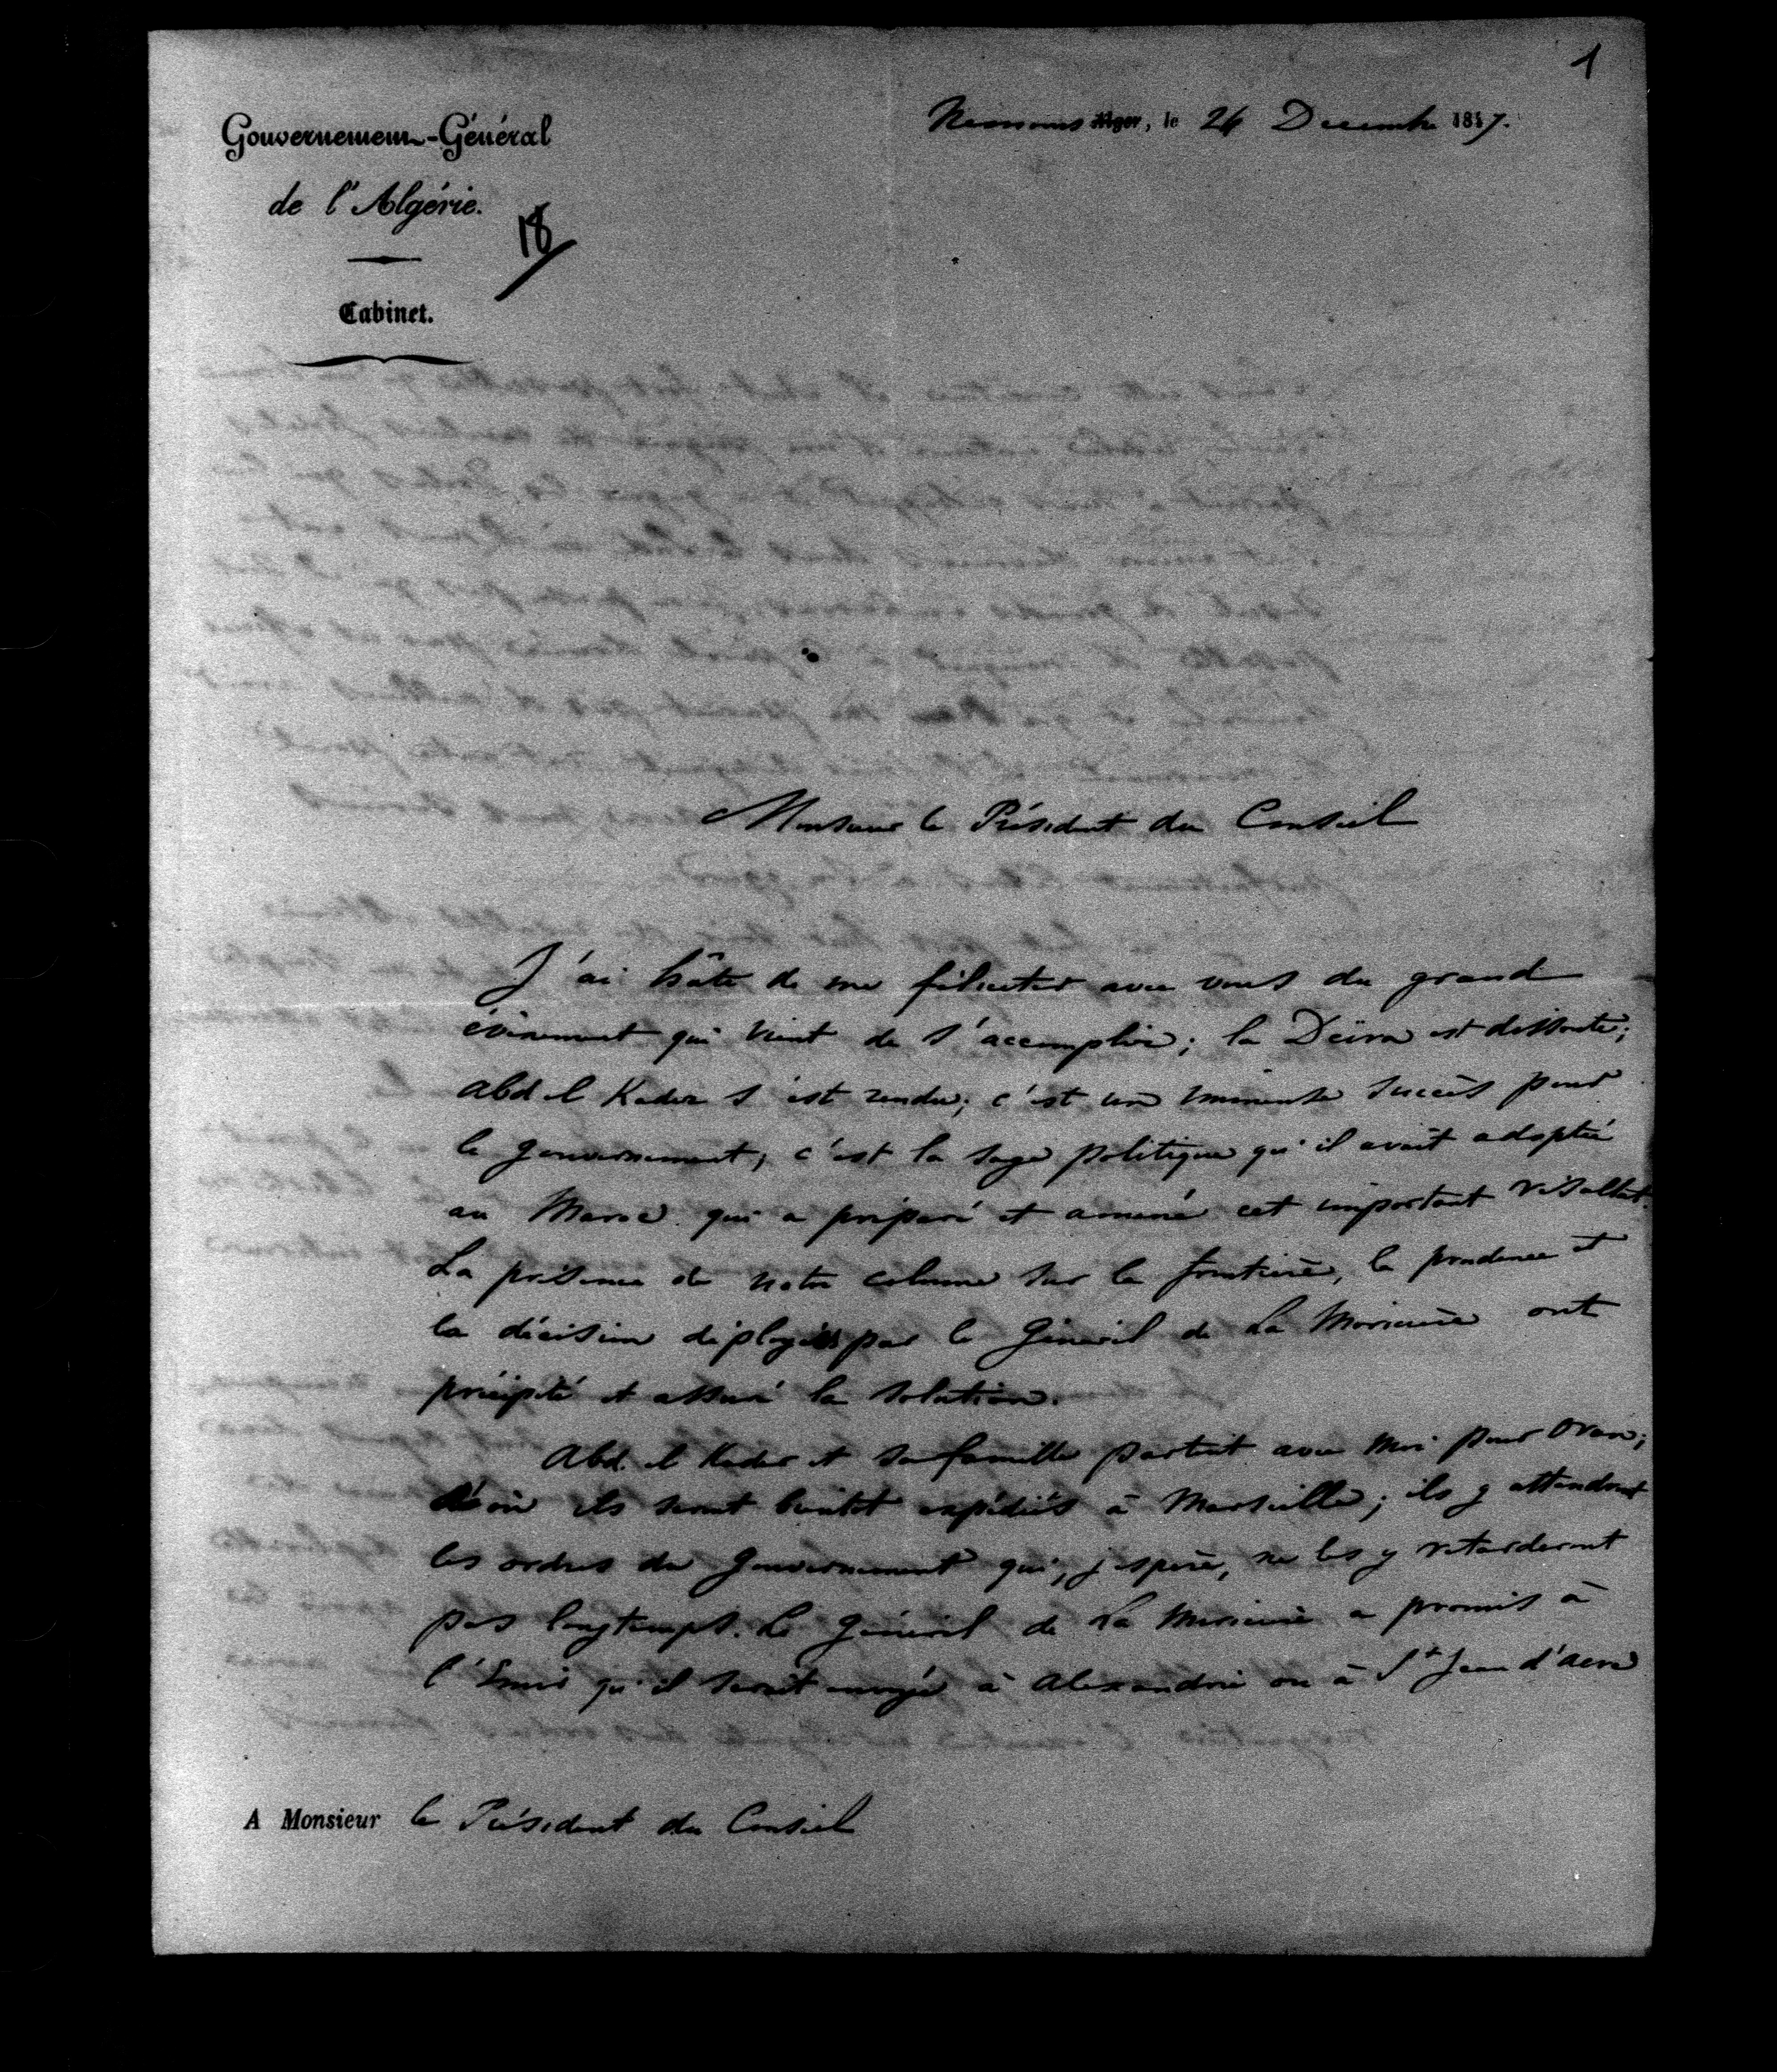 1
Gouvernement-Général
de l'Algérie.
18
Cabinet.
Nemours Alger, le 24 Decembre 1847.
Monsieur le Président du Conseil
J'ai hâte de me féliciter avec vous du grand
évènement qui vient de s'accomplir; la Déïra est dissoute;
Abd el Kader s'est rendu; c'est un immense succès pour
le gouvernement, c'est la sage politique qu'il avait adoptée
au Maroc qui a préparé et amené cet important résultat.
La présence de notre colonne sur la frontière, la prudence et
la décision deployées par le Général de La Moricière ont
précipité et assuré la solution.
Abd. el Kader et sa famille partent avec moi pour Oran;
d'où ils seront bientôt expédiés à Marseille; ils y attendront
les ordres du Gouvernement qui, j'espère, ne les y retarderont
pas longtemps. Le Général de La Moricière a promis à
l'Emir qu'il serait envoyé à Alexandrie ou à St Jean d'Acre
A Monsieur le Président du Conseil